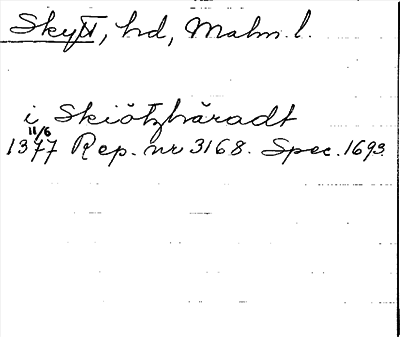 Skytt, hd, Malm. l.
i Skiötzhäradt
11/6
1377 Rep. nr 3168. Spec. 1693.